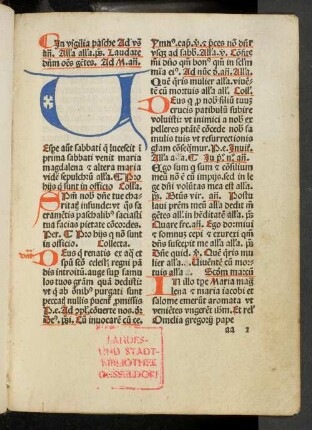 In vigilia pasche Ad vs̄
añ. Alla alla. ps. Laudate
dñm oēs gētes. Ad M. añ.
Espe aūt sabbati q̄ lucescit ī
prima sabbati venit maria
magdalena ⁊ altera maria
videre sepulchrū alla. Pro
his q̄ sunt in officio Colla.
Spm nob̄ dñe tue cha
ritat̄ infunde: vt q̄s sa
cramētis paschalib̄ saciasti
tua facias pietate cōcordes.
Per. Pro his q̄ nō sunt
in officio. Collecta.
Deus q̄ renatis ex aq̄ et
spū sctō celest̄ regni pā
dis introitū. auge sup famu
los tuos grām quā dedisti:
vt q̄ ab om̄ib̄ purgati sunt
peccat̄ nullis puent̄ ꝓmissis
P. e. Ad cōpl. cōuerte nos. ds̄
De. ps̄. Cū inuocarē cū ce.
Ymn. cap. v. ⁊ pces nō dr̄
vsq̄ ad sabb. Alla. v. Cōfite
mī dño qm̄ bon̄ qm̄ in secu
mīa ei. Ad nūc d. añ. Alla.
Que q̄ris mulier alla. viuē
tē cū mortuis alla all. Coll.
Deus q̄ p nob̄ filiū tuū
crucis patibulū subire
voluisti: vt inimici a nob̄ ex
pelleres ptātē cōcede nob̄ fa
mulis tuis vt resurrectionis
gram cōseq̄mur. P. e. Inuit.
Alla alla In pº nº. añ.
Ego sum q̄ sum ⁊ cōsilium
meū nō ē cū impijs. sed in le
ge dn̄i volūtas mea est alla.
ps̄. Btūs vir. añ. Postu
laui prēm meū alla dedit m̄
gētes all. in hēditatē alla. ps̄.
Quare fre. añ. Ego dormiui
⁊ somnus cepi ⁊ exurexi qm̄
dñs suscepit me alla alla. ps̄.
Dñe quid. v. Quē q̄ris mu
lier alla. Uiuentē cū mor
tuis alla Scdm marcū
In illo tpe Maria mag
lena ⁊ maria iacobi et
salome emerūt aromata vt
veniētes vngerēt ihm. Et rel
Omelia gregorij pape
aa 1
LANDES-
UND STADT-
BIBLIOTHEK
DÜSSELDORF